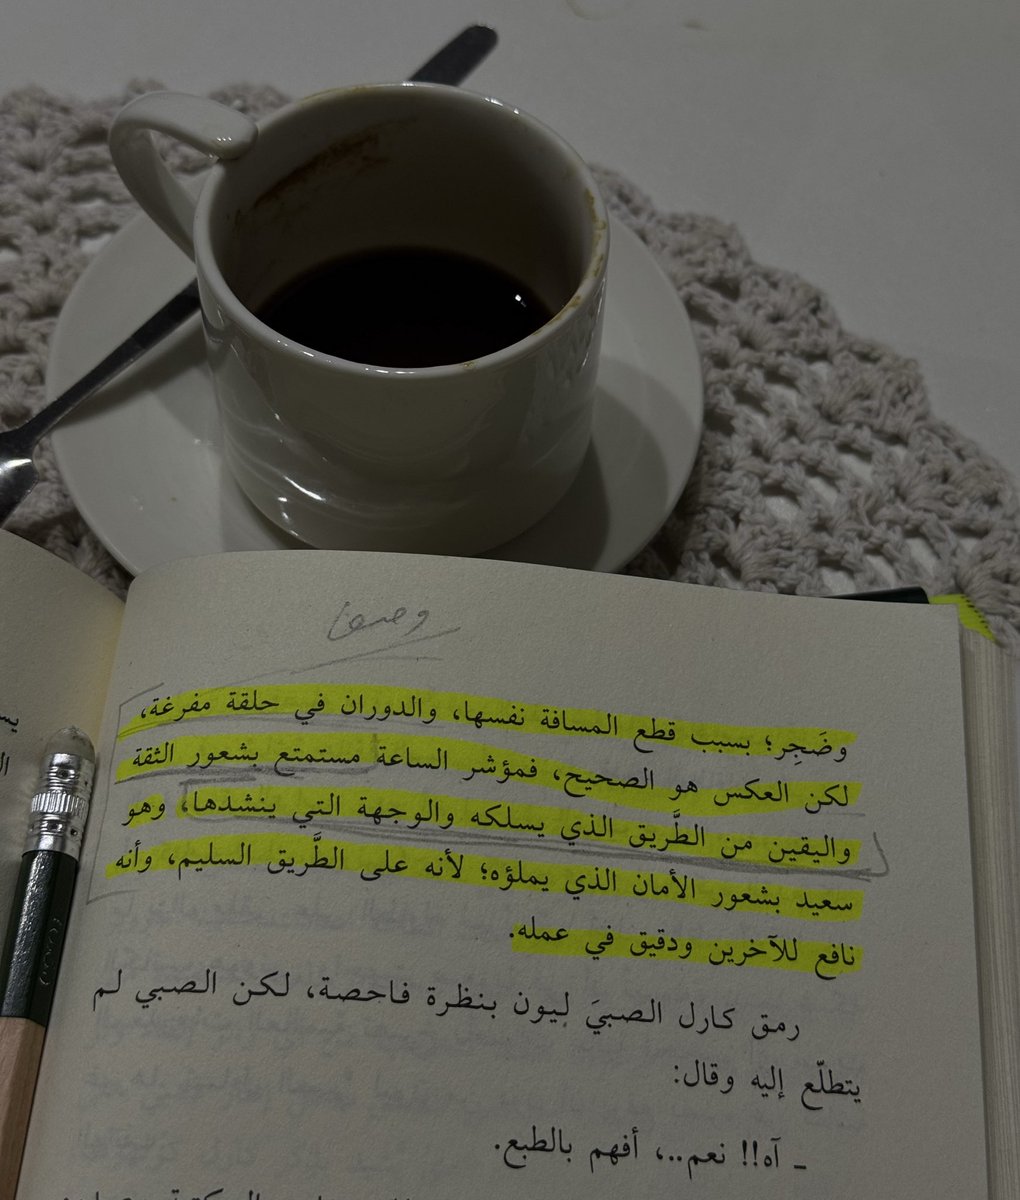 وضَجِر؛ بسبب قطع المسافة نفسها، والدوران في حلقة مفرغة،
لكن العكس هو الصحيح، فمؤشر الساعة مستمتع بشعور الثقة
واليقين من الطَّريق الذي يسلكه والوجهة التي ينشدها، وهو
سعيد بشعور الأمان الذي يملؤه؛ لأنه على الطَّريق السليم، وأنه
نافع للآخرين ودقيق في عمله.
رمق كارل الصبيَ ليون بنظرة فاحصة، لكن الصبي لم
يتطلّع إليه وقال:
ـ آه!! نعم..، أفهم بالطبع.